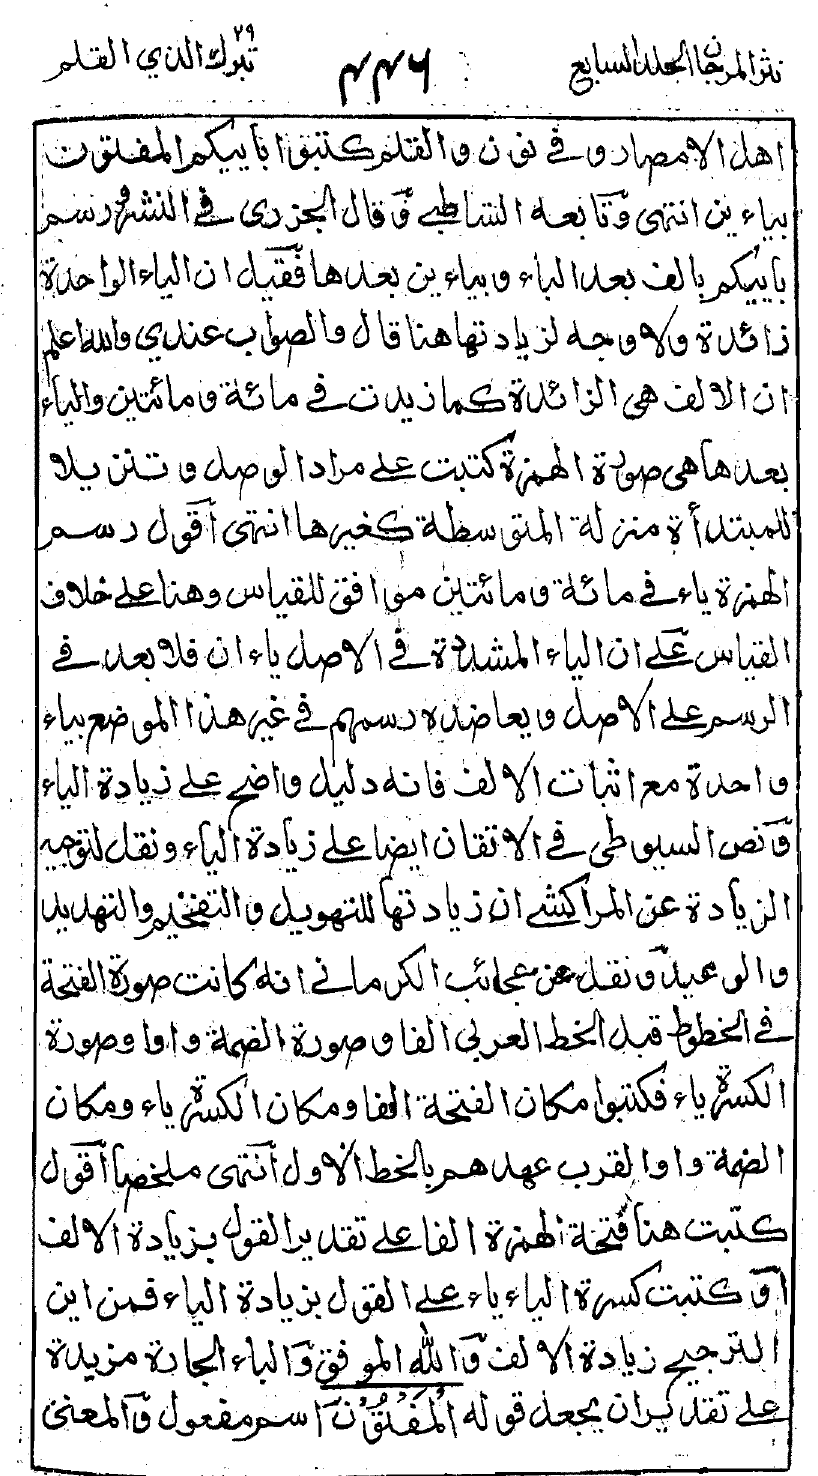 نثر المرجان الجلد السابع
٤٤٦
تبرك الذي ٢٩ القلم
اهل الامصار و في نون والقلم كتبوا بأييكم المفتون
بياءين انتهى وتابعه الشاطبي وقال الجزري في النشر ورسم
بأييكم بالف بعد الباء وبياءين بعدها فقيل ان الياء الواحدة
زائدة ولا وجه لزيادتها هنا قال والصواب عندي والله اعلم
ان الالف هي الزائدة كما زيدت في مائة ومائتين والياء
بعدها هي صورة الهمزة كتبت على مراد الوصل وتنزيلا
للمبتدأة منزلة المتوسطة كغيرها انتهى أقول رسم
الهمزة ياء في مائة ومائتين موافق للقياس وهنا على خلاف
القياس على ان الياء المشددة في الاصل ياءان فلا بعد في
الرسم على الاصل ويعاضده رسمهم في غير هذا الموضع بياء
واحدة مع اثبات الالف فانه دليل واضح على زيادة الياء
ونص السيوطي في الاتقان ايضا على زيادة الياء ونقل لتوجيه
الزيادة عن المراكشي ان زيادتها للتهويل والتفخيم والتهديد
والوعيد ونقل عن عجائب الكرماني انه كانت صورة الفتحة
في الخطوط قبل الخط العربي الفا وصورة الضمة واوا وصورة
الكسرة ياء فكتبوا مكان الفتحة الفا ومكان الكسرة ياء ومكان
الضمة واوا لقرب عهدهم بالخط الاول انتهى ملخصا أقول
كتبت هنا فتحة الهمزة الفا على تقدير القول بزيادة الالف
أو كتبت كسرة الياء ياء على القول بزيادة الياء فمن اين
الترجيح زيادة الالف والله الموفق والباء الجارة مزيدة
على تقدير ان يجعل قوله الْمَفْتُوْنَ اسم مفعول والمعنى